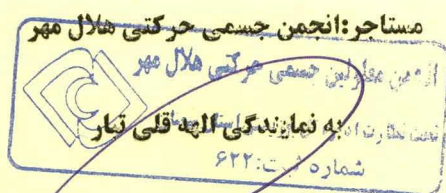 مستاجر:انجمن جسمی حرکتی هلال مهر
انجمن معلولین جسمی حرکتی هلال مهر
به نمایندگی الهه قلی تبار
تحت نظارت
شماره ثبت:۶۲۲